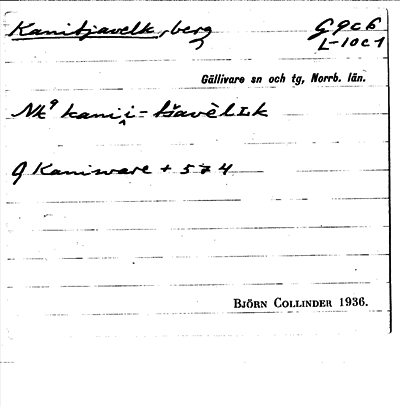 Kanitjavelk, berg G9c6
L-10c1
Gällivare sn och tg, Norrb. län.
Nk⁹ kani̭i-tšavèlLk
G Kanisvare + 574
BJÖRN COLLINDER 1936.